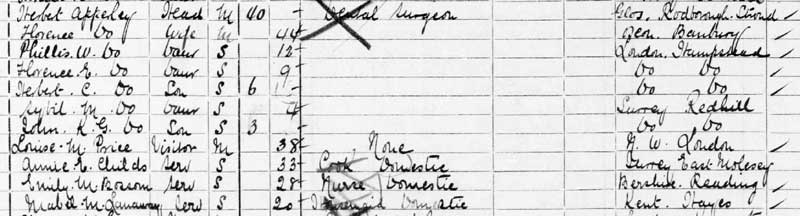 Herbert Apperley Head M 40 Dental Surgeon Glos. Rodborough. Stroud
Florence Do Wife M 44 Oxon. Banbury
Phillis. W. Do Daur S 12 London. Hampstead
Florence E. Do Daur S 9 Do Do
Herbert C. Do Son S 6 Do Do
Sybil. M. Do Daur S 4 Surrey Redhill
John. K. G. Do Son S 3 Do Do
Louise. M. Price Visitor M 38 None N. W. London
Annie E. Childs Serv S 33 Cook Domestic Surrey East Molesey
Emily. M. Serv S 28 Nurse Domestic Berkshire Reading
Mabel M. Serv S 20 Domestic Kent. Hayes